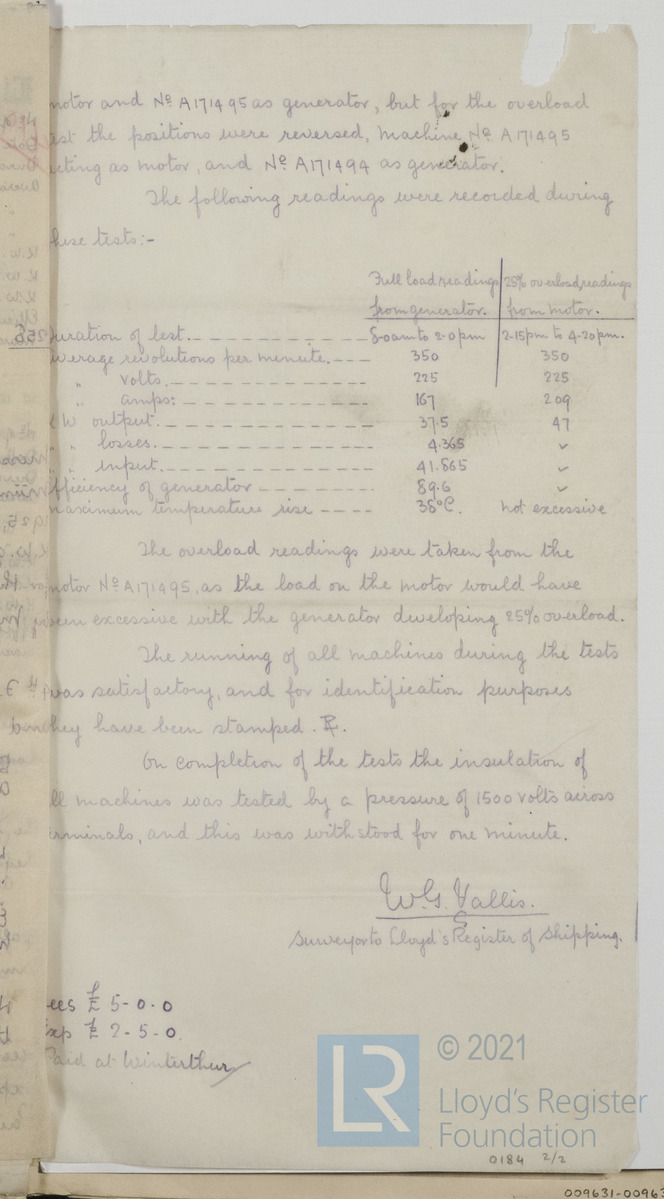 motor and No A171495 as generator, but for the overload
est the positions were reversed, machine No A171495
cting as motor, and No A171494 as generator.
The following readings were recorded during
hese tests:-
Full load readings 25% overload readings
from generator. from motor.
uration of test. 8-0am to 2-0pm 2-15pm to 4-20pm.
verage revolutions per minute. 350 350
" volts. 225 225
" amps: 167 209
KW output. 37.5 47
" " losses. 4.365 ✓
" " input. 41.865 ✓
fficiency of generator 89.6 ✓
maximum temperature rise 38°C. not excessive
The overload readings were taken from the
motor No A171495, as the load on the motor would have
been excessive with the generator developing 25% overload.
The running of all machines during the tests
was satisfactory, and for identification purposes
hey have been stamped.
On completion of the tests the insulation of
ll machines was tested by a pressure of 1500 volts across
erminals, and this was withstood for one minute.
W.G. Vallis.
Surveyor to Lloyd's Register of Shipping.
ees £ 5-0-0
Exp £ 2-5-0
Paid at Winterthur
LR
© 2021
Lloyd's Register
Foundation
0184 2/2